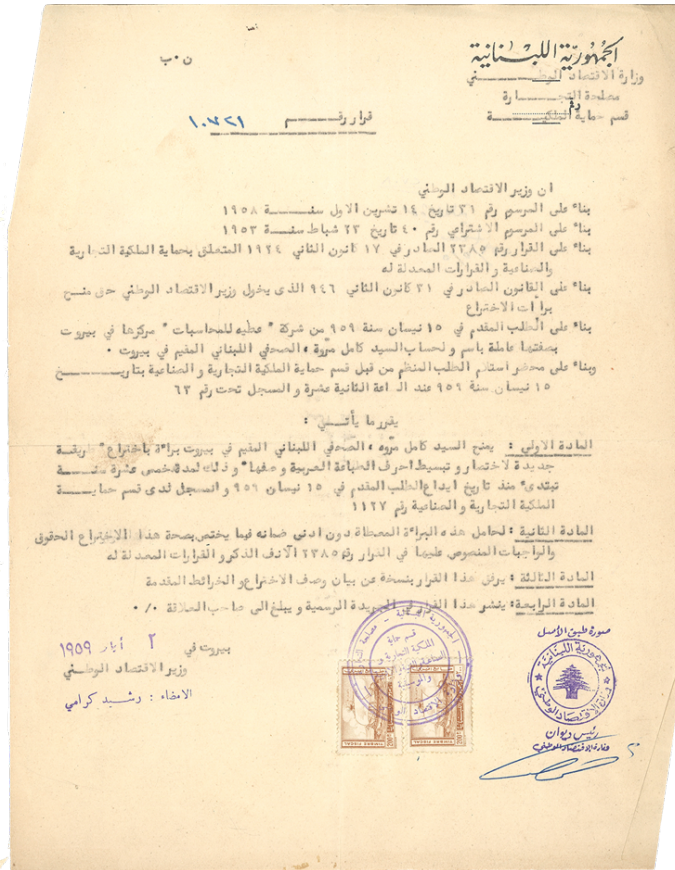 ن ٠ ب
الجمهورية اللبنانية
وزارة الاقتصاد الوطـــــني
مصلحة التجـــــارة
رقم
قسم حماية الملكيـــــة
قرار رقـــــم ١٠٧٢١
ان وزير الاقتصاد الوطني
بناء على المرسوم رقم ٣١ تاريخ ١٤ تشرين الاول سنـــــة ١٩٥٨
بناء على المرسوم الاشتراعي رقم ٤٠ تاريخ ٢٣ شباط سنـــــة ١٩٥٣
بناء على القرار رقم ٢٣٨٥ الصادر في ١٧ كانون الثاني ١٩٢٤ المتعلق بحماية الملكية التجارية
والصناعية والقرارات المعدلة له
بناء على القانون الصادر في ٣١ كانون الثاني ٩٤٦ الذي يخول وزير الاقتصاد الوطني حق منح
براءات الاختراع
بناء على الطلب المقدم في ١٥ نيسان سنة ٩٥٩ من شركة " عطيه للمحاسبات " مركزها في بيروت
بصفتها عاملة باسم ولحساب السيد كامل مروّه ، الصحفي اللبناني المقيم في بيروت ٠
وبناء على محضر استلام الطلب المنظم من قبل قسم حماية الملكية التجارية و الصناعية بتاريـــــخ
١٥ نيسان سنة ٩٥٩ عند الساعة الثانية عشرة و المسجل تحت رقم ٦٣
يقرر ما يأتـــــي :
المادة الاولى : يمنح السيد كامل مروّه ، الصحفي اللبناني المقيم في بيروت براءة باختراع " طريقة
جديدة لاختصار و تبسيط احرف الطباعة العربية وصفها " و ذلك لمدة خمس عشرة سنـــــة
تبتدىء منذ تاريخ ايداع الطلب المقدم في ١٥ نيسان ٩٥٩ و المسجل لدى قسم حمايـــــة
الملكية التجارية و الصناعية رقم ١١٢٧
المادة الثانية : لحامل هذه البراءة المعطاة دون ادنى ضمانه فيما يختص بصحة هذا الاختراع الحقوق
والواجبات المنصوص عليها في القرار رقم ٢٣٨٥ الآنف الذكر و القرارات المعدلة له
المادة الثالثة : يرفق هذا القرار بنسخة عن بيان وصف الاختراع و الخرائط المقدمة
المادة الرابعة : ينشر هذا القرار في الجريدة الرسمية و يبلغ الى صاحب العلاقة ٠/٠
بيروت في ٢ أيار ١٩٥٩
وزير الاقتصاد الوطني
الامضاء : رشيد كرامي
صورة طبق الأصل
الجمهورية اللبنانية
وزارة الاقتصاد الوطني
رئيس ديوان
وزارة الاقتصاد الوطني
TIMBRE FISCAL
TIMBRE FISCAL